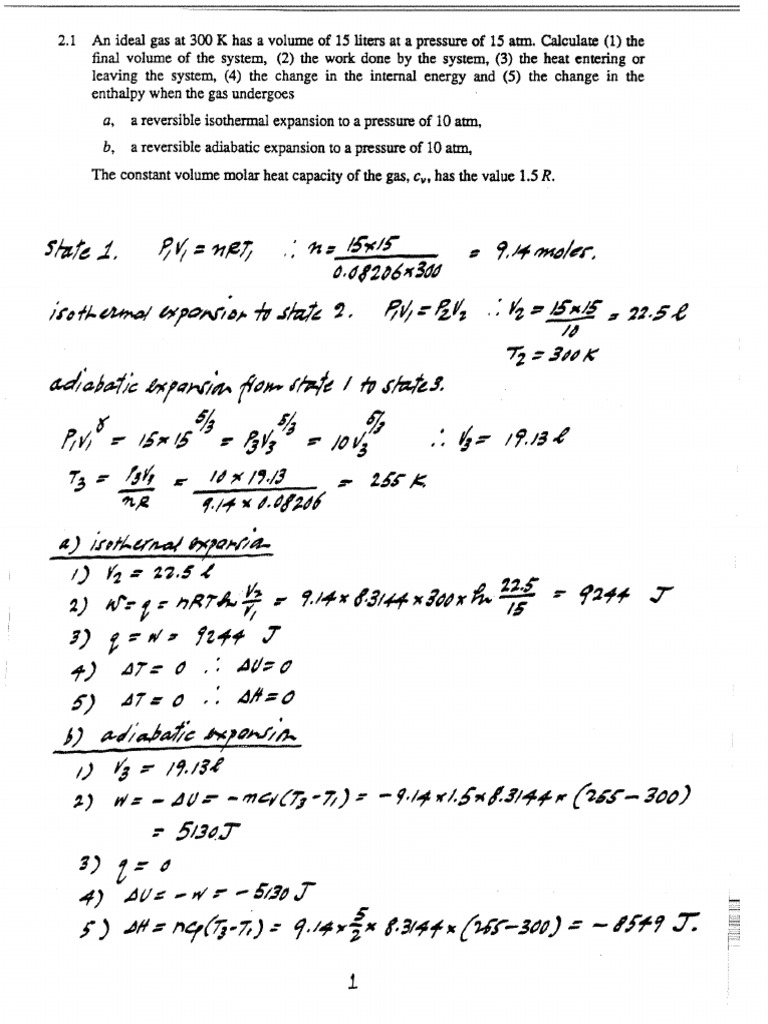 2.1 An ideal gas at 300 K has a volume of 15 liters at a pressure of 15 atm. Calculate (1) the
final volume of the system, (2) the work done by the system, (3) the heat entering or
leaving the system, (4) the change in the internal energy and (5) the change in the
enthalpy when the gas undergoes
a, a reversible isothermal expansion to a pressure of 10 atm,
b, a reversible adiabatic expansion to a pressure of 10 atm,
The constant volume molar heat capacity of the gas, cᵥ, has the value 1.5 R.
State 1. P₁V₁ = nRT₁ ∴ n = 15×15 / 0.08206×300 = 9.14 moles.
isothermal expansion to state 2. P₁V₁ = P₂V₂ ∴ V₂ = 15×15 / 10 = 22.5 ℓ
T₂ = 300 K
adiabatic expansion from state 1 to state 3.
P₁V₁^γ = 15×15^5/3 = P₃V₃^5/3 = 10V₃^5/3 ∴ V₃ = 19.13 ℓ
T₃ = P₃V₃ / nR = 10 × 19.13 / 9.14 × 0.08206 = 255 K.
a) isothermal expansion
1) V₂ = 22.5 ℓ
2) W = q = nRT ln V₂/V₁ = 9.14 × 8.3144 × 300 × ln 22.5/15 = 9244 J
3) q = W = 9244 J
4) ΔT = 0 ∴ ΔU = 0
5) ΔT = 0 ∴ ΔH = 0
b) adiabatic expansion
1) V₃ = 19.13 ℓ
2) W = −ΔU = −ncv(T₃−T₁) = −9.14 × 1.5 × 8.3144 × (255−300)
= 5130 J
3) q = 0
4) ΔU = −W = −5130 J
5) ΔH = ncp(T₃−T₁) = 9.14 × 5/2 × 8.3144 × (255−300) = −8549 J.
1